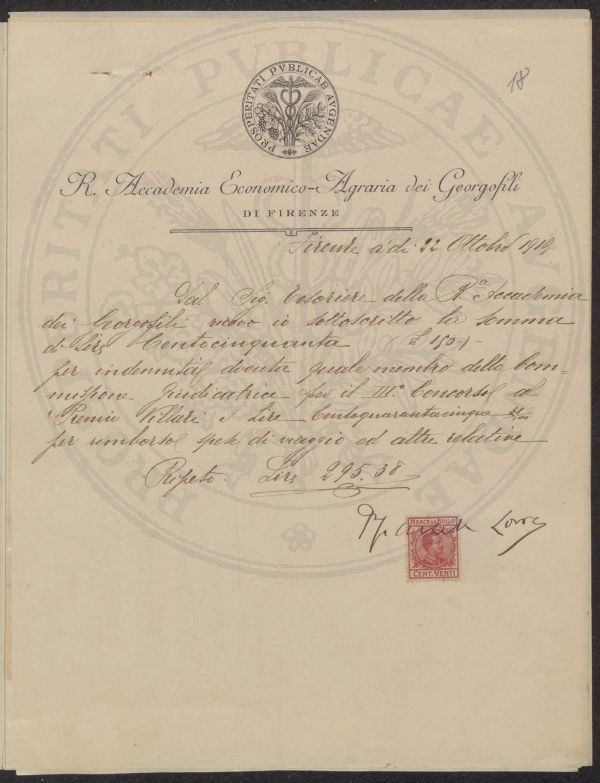 18
PROSPERITATI PVBLICAE AVGENDAE
R. Accademia Economico-Agraria dei Georgofili
DI FIRENZE
Firenze a' di 22 Ottobre 1919
Dal Sig. Tesoriere della R.a Accademia
dei Georgofili ricevo io sottoscritto la somma
di Lire Centocinquanta (£ 150.-)
per indennità dovuta quale membro della Com-
missione Giudicatrice per il III.o Concorso al
Premio Villari e Lire Centoquarantacinque
per rimborso spese di viaggio ed altre relative
Ripeto. Lire 295.38
MARCA DA BOLLO
CENT. VENTI